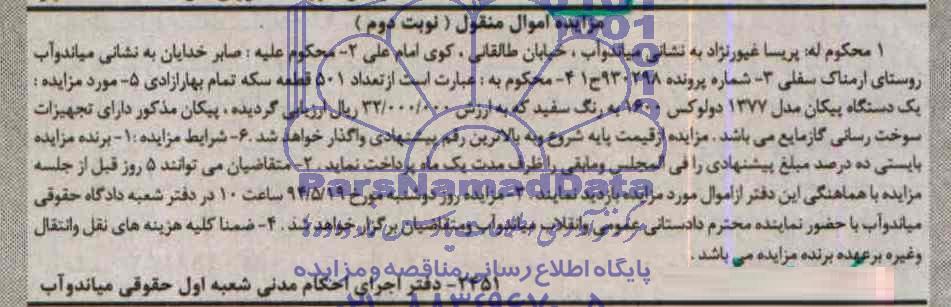 مزایده اموال منقول ( نوبت دوم )
۱ محکوم له: پریسا غیورنژاد به نشانی میاندوآب ، خیابان طالقانی ، کوی امام علی ۲- محکوم علیه : صابر خدایان به نشانی میاندوآب
روستای ارمناک سفلی ۳- شماره پرونده ۹۳۰۲۹۸ج۱ ۴- محکوم به : عبارت است ازتعداد ۵۰۱ قطعه سکه تمام بهارازادی ۵- مورد مزایده :
یک دستگاه پیکان مدل ۱۳۷۷ دولوکس ۱۶۰۰ به رنگ سفید که به ارزش ۳۲/۰۰۰/۰۰۰ ریال ارزیابی گردیده ، پیکان مذکور دارای تجهیزات
سوخت رسانی گازمایع می باشد . مزایده ازقیمت پایه شروع وبه بالاترین رقم پیشنهادی واگذار خواهد شد .۶- شرایط مزایده :۱- برنده مزایده
بایستی ده درصد مبلغ پیشنهادی را فی المجلس ومابقی را ظرف مدت یک ماه پرداخت نماید .۲- متقاضیان می توانند ۵ روز قبل از جلسه
مزایده با هماهنگی این دفتر ازاموال مورد مزایده بازدید نمایند .۳- مزایده روز دوشنبه مورخ ۹۴/۵/۱۹ ساعت ۱۰ در دفتر شعبه دادگاه حقوقی
میاندوآب با حضور نماینده محترم دادستانی عمومی وانقلاب میاندوآب ومتقاضیان برگزار خواهد شد . ۴- ضمنا کلیه هزینه های نقل وانتقال
وغیره برعهده برنده مزایده می باشد .
۲۴۵۱- دفتر اجرای احکام مدنی شعبه اول حقوقی میاندوآب
ParsNamadData
پایگاه اطلاع رسانی مناقصه و مزایده